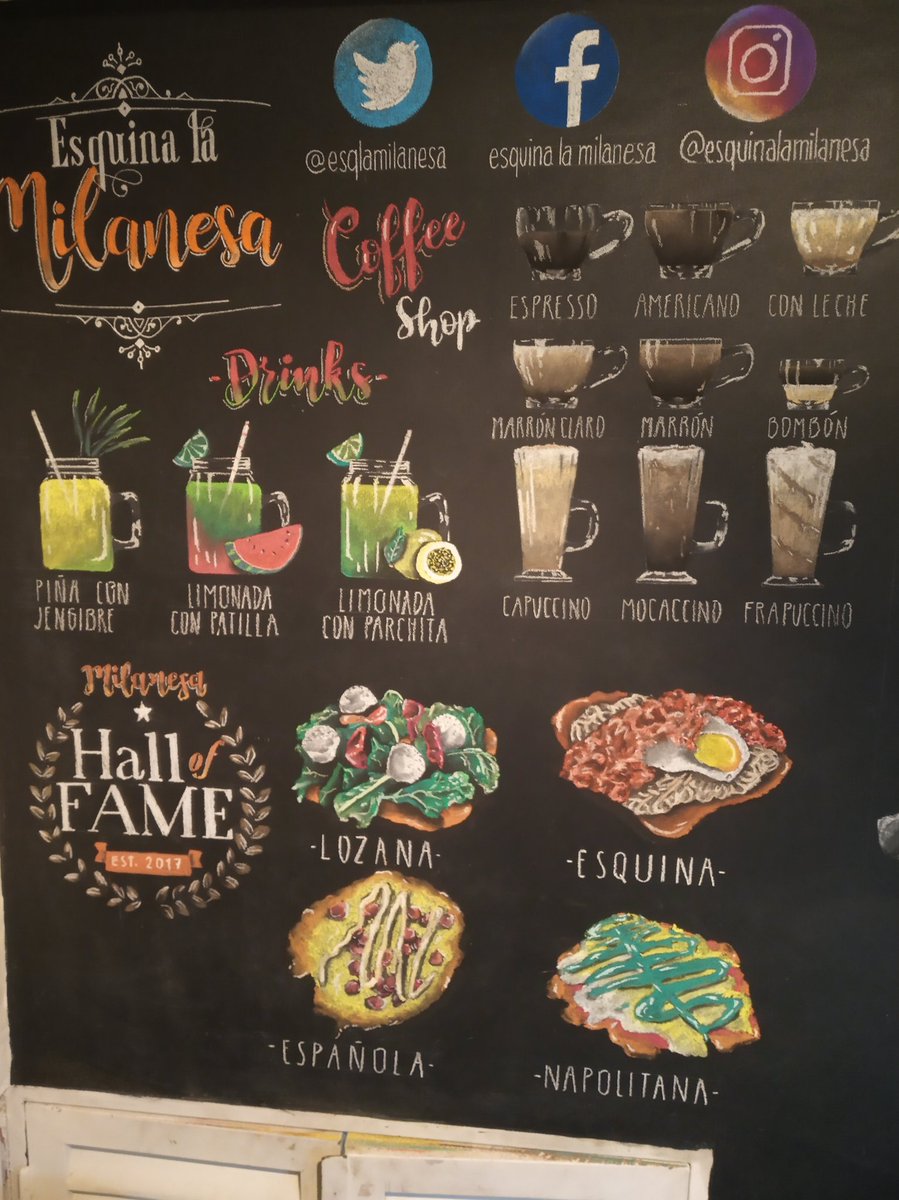 Esquina la
Milanesa
@esqlamilanesa
esquina la milanesa
@esquinalamilanesa
Coffee
Shop
ESPRESSO
AMERICANO
CON LECHE
MARRÓN CLARO
MARRÓN
BOMBÓN
CAPUCCINO
MOCACCINO
FRAPUCCINO
-Drinks-
PIÑA CON
JENGIBRE
LIMONADA
CON PATILLA
LIMONADA
CON PARCHITA
Milanesa
Hall of
FAME
EST. 2017
-LOZANA-
-ESQUINA-
-ESPÁÑOLA-
-NAPOLITANA-